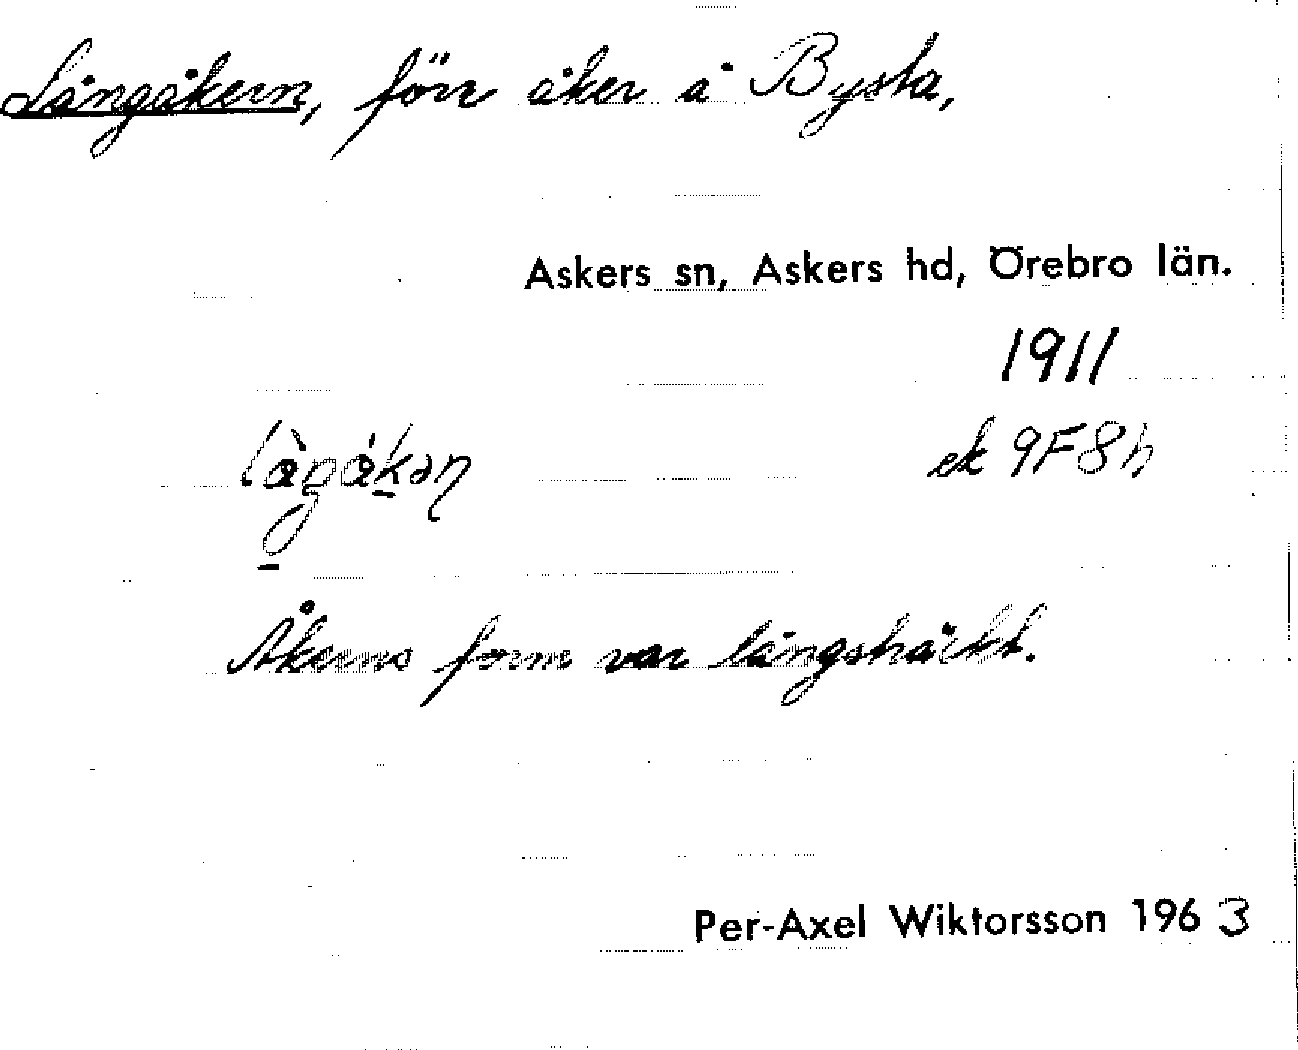 Långåkern, förr åker å Bysta,
Askers sn, Askers hd, Örebro län.
1911
ek 9F8h
Åkerns form var långsträckt.
Per-Axel Wiktorsson 1963